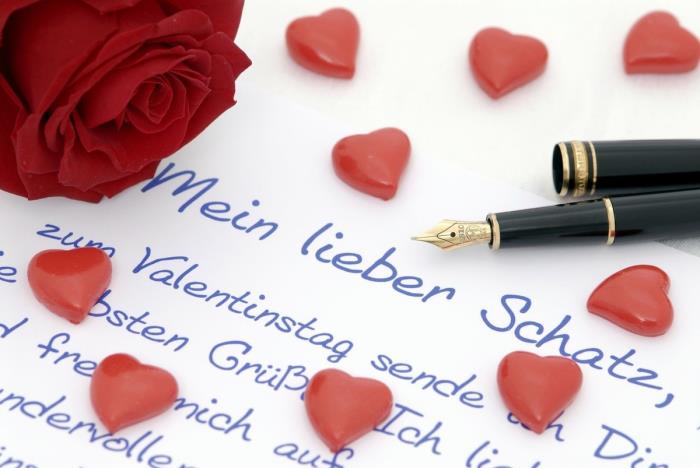 Mein lieber Schatz,
zum Valentinstag sende ich Dir
bsten Grüß Ich lie
d fre mich auf
ndervolle